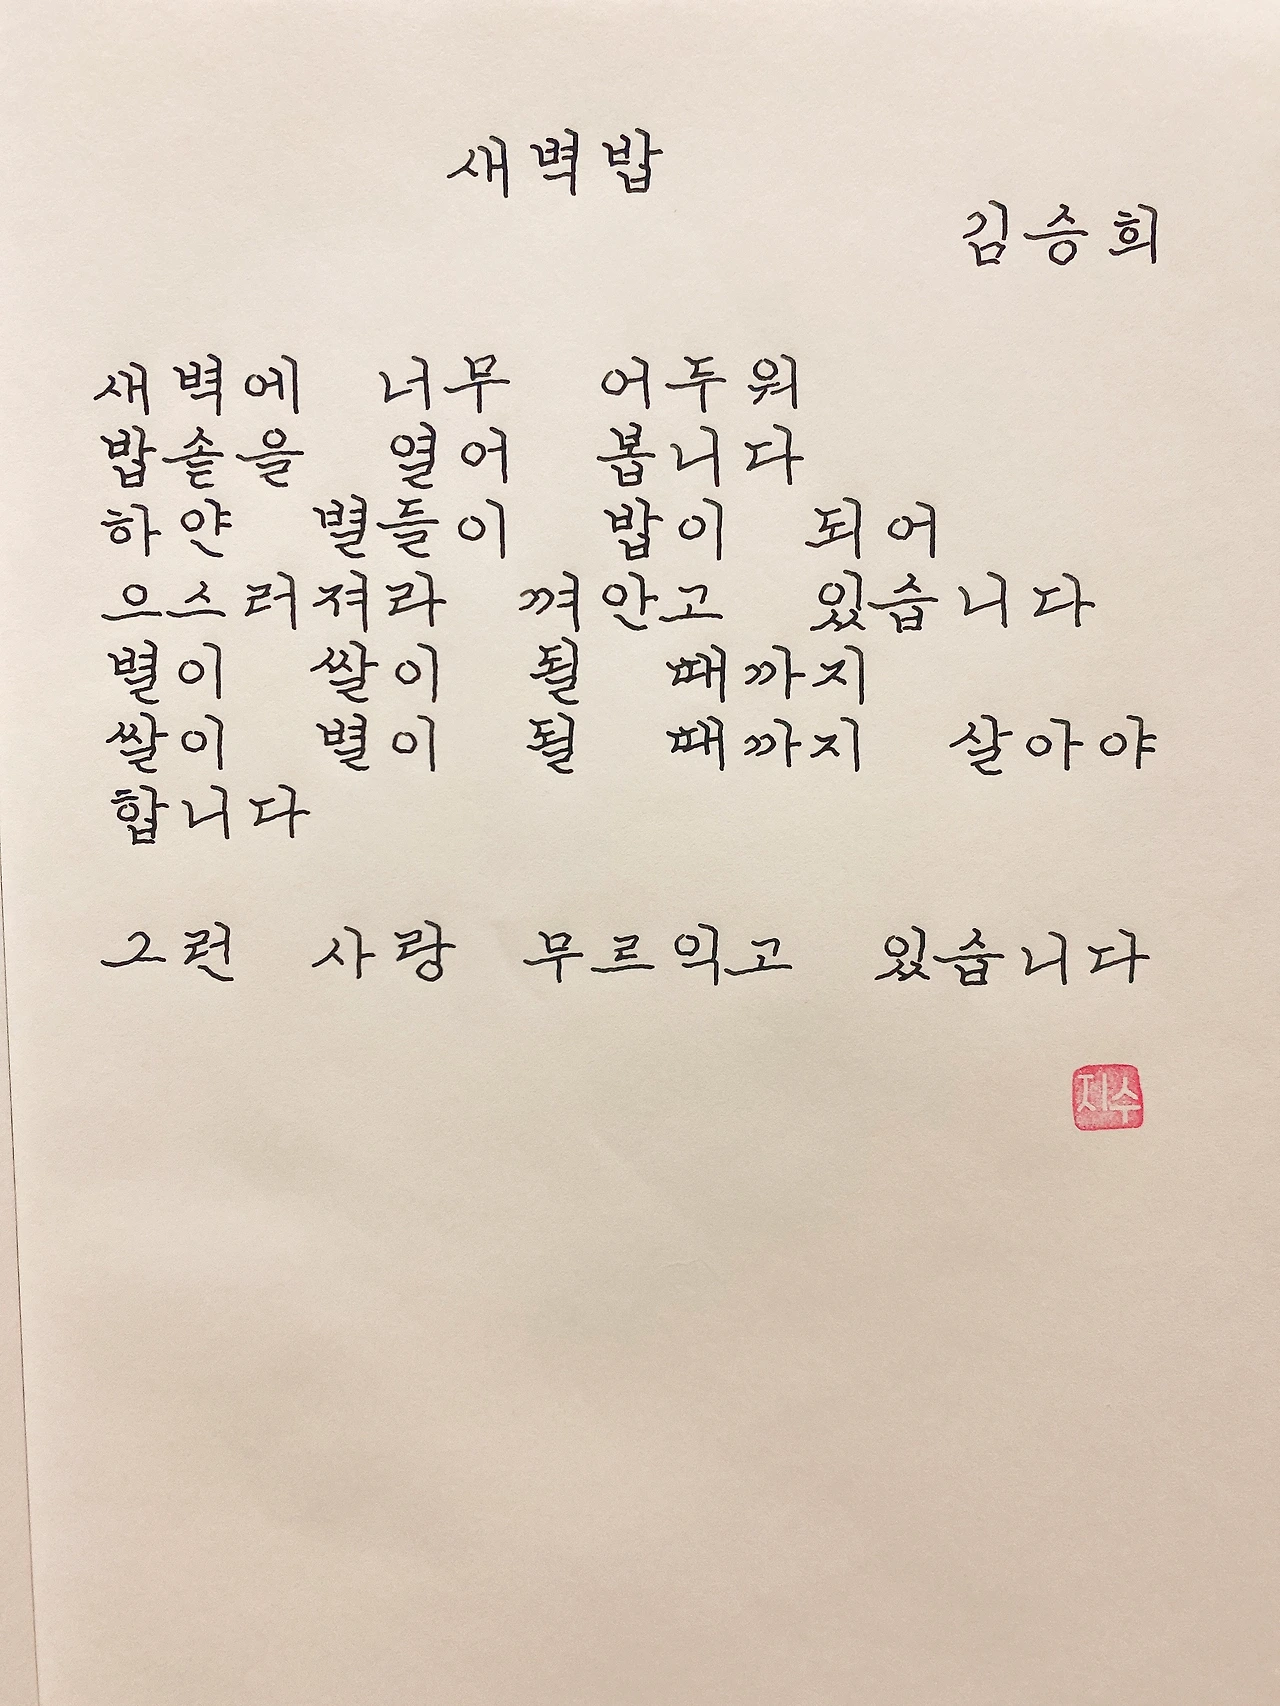 새벽밥
김승희
새벽에 너무 어두워
밥솥을 열어 봅니다
하얀 별들이 밥이 되어
으스러져라 껴안고 있습니다
별이 쌀이 될 때까지
쌀이 별이 될 때까지 살아야
합니다
그런 사랑 무르익고 있습니다
지수